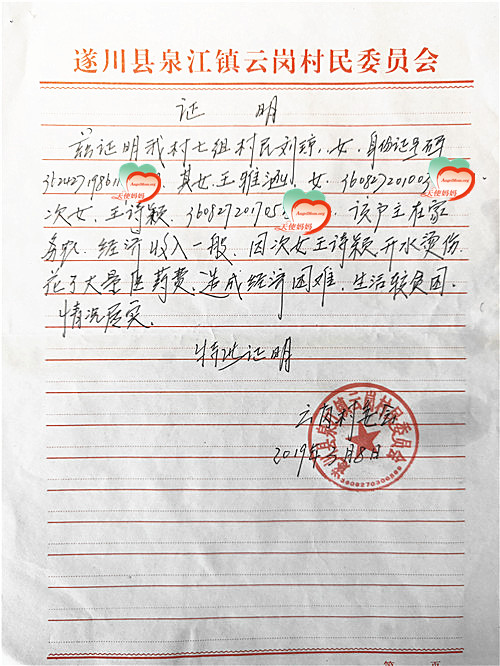 遂川县泉江镇云岗村民委员会
证 明
兹证明我村七组村民刘琼，女，身份证号码
36242719861 其女王雅涵，女，36082720100
次女，王诗颖，36082720170 该户主在家
务农，经济收入一般，因次女王诗颖开水烫伤
花了大量医药费，造成经济困难，生活较贫困，
情况属实。
特此证明
云岗村委会
2019年 月8日
遂川县泉江镇云岗村民委员会
天使妈妈
天使妈妈
天使妈妈
第 页